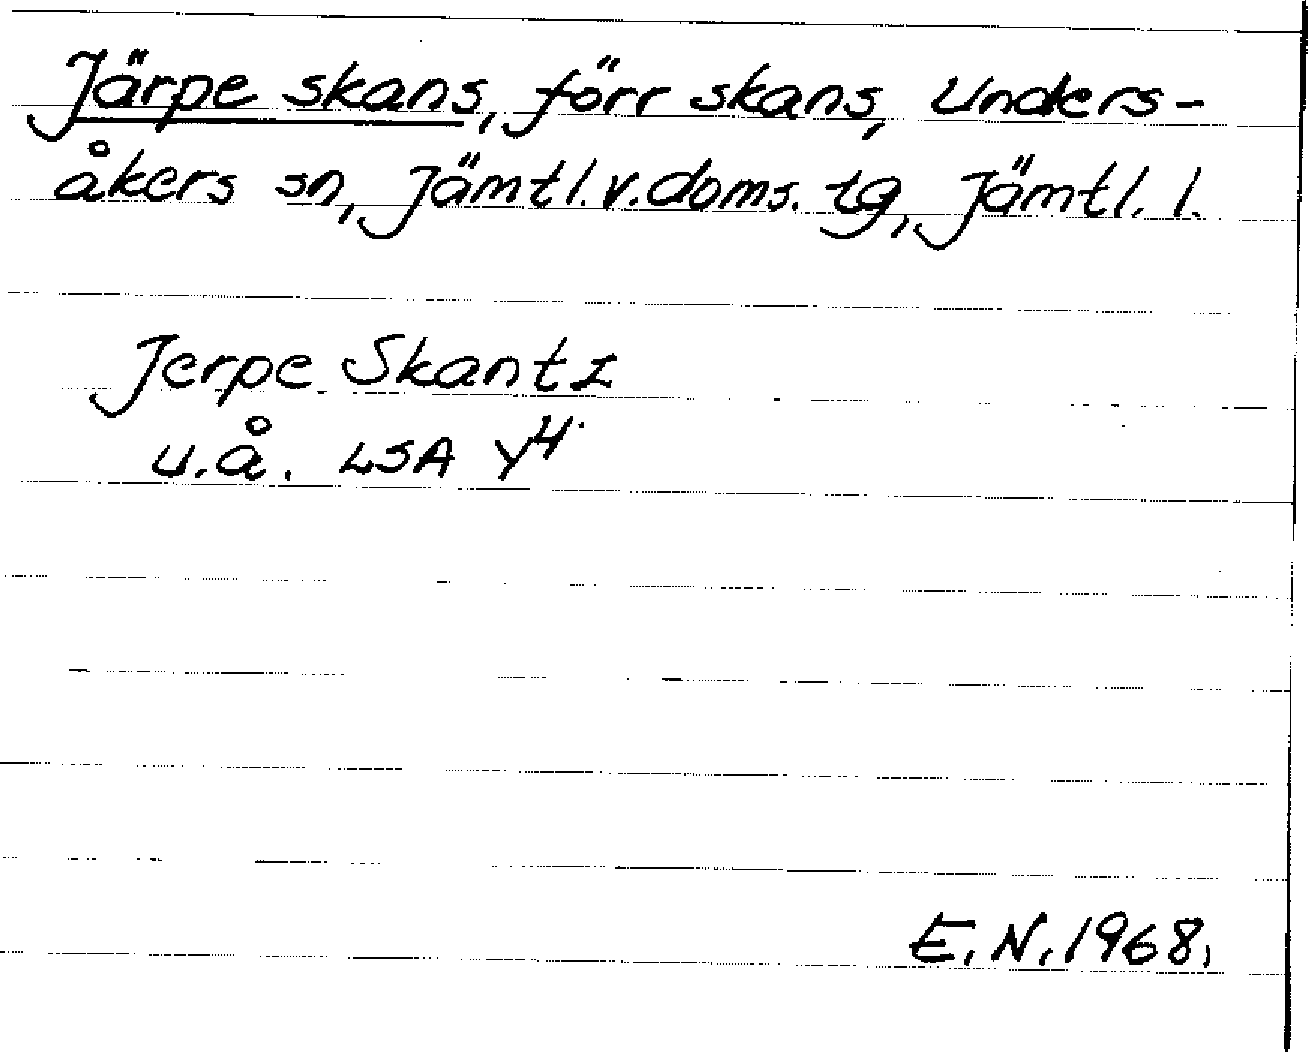 Järpe skans, förr skans, Unders-
åkers sn, Jämtl. v. doms. tg, Jämtl. l.
Jerpe Skantz
u.å. LSA Y4.
E.N. 1968.